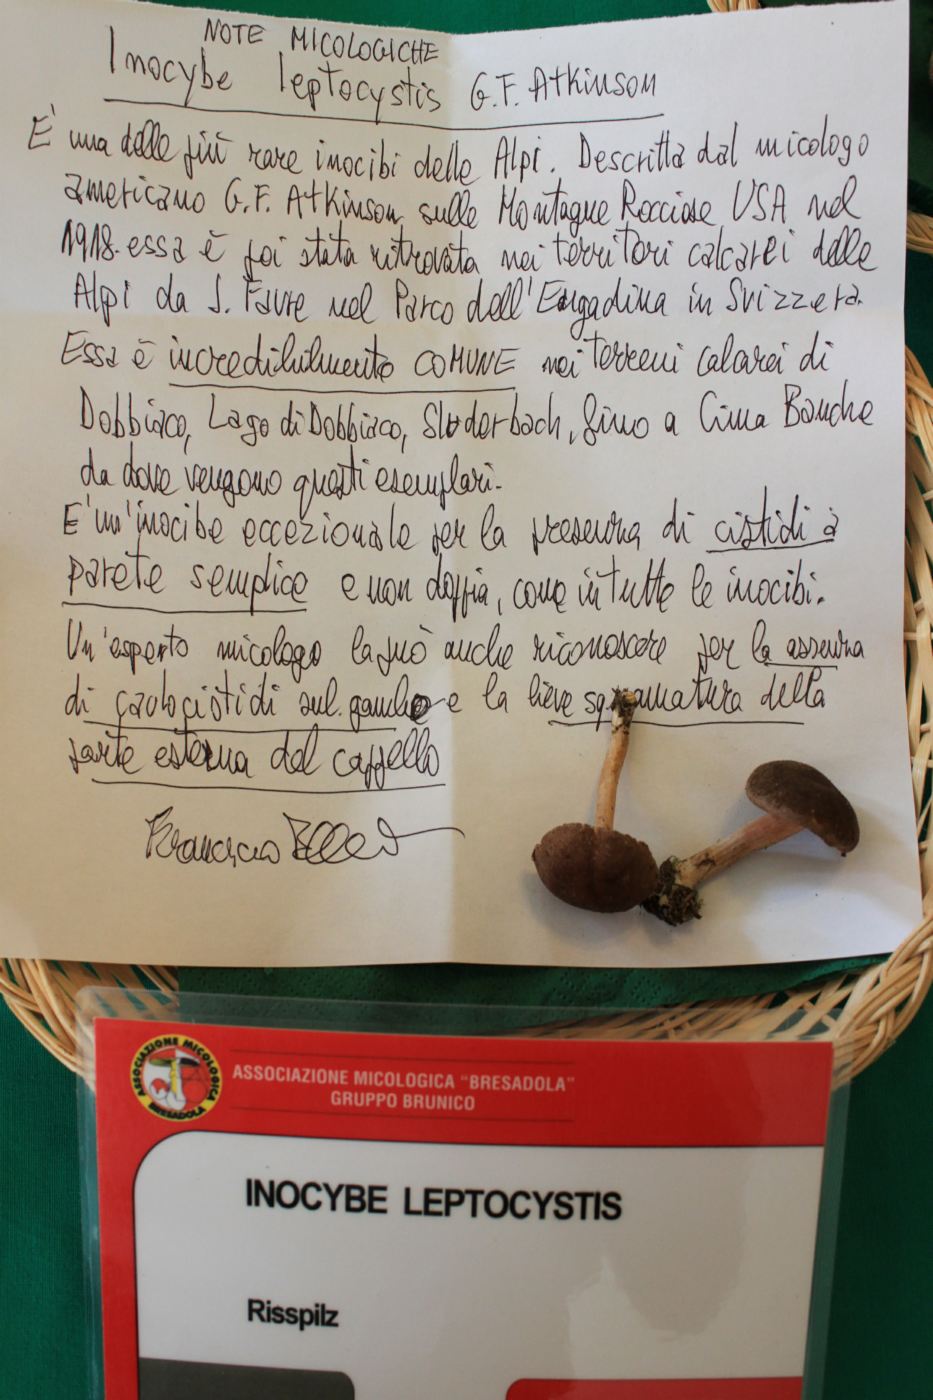 NOTE MICOLOGICHE
Inocybe leptocystis G.F. Atkinson
E' una delle più rare inocibi delle Alpi. Descritta dal micologo
americano G.F. Atkinson sulle Montagne Rocciose USA nel
1918. essa è poi stata ritrovata nei territori calcarei delle
Alpi da J. Favre nel Parco dell'Engadina in Svizzera.
Essa è incredibilmente COMUNE nei terreni calcarei di
Dobbiaco, Lago di Dobbiaco, Sluderbach, fino a Cima Banche
da dove vengono questi esemplari.
E' un'inocibe eccezionale per la presenza di cistidi a
parete semplice e non doppia, come in tutte le inocibi.
Un'esperto micologo la può anche riconoscere per la assenza
di caulocistidi sul gambo e la lieve squamatura della
parte esterna del cappello
Francesco
ASSOCIAZIONE MICOLOGICA BRESADOLA
ASSOCIAZIONE MICOLOGICA "BRESADOLA"
GRUPPO BRUNICO
INOCYBE LEPTOCYSTIS
Risspilz